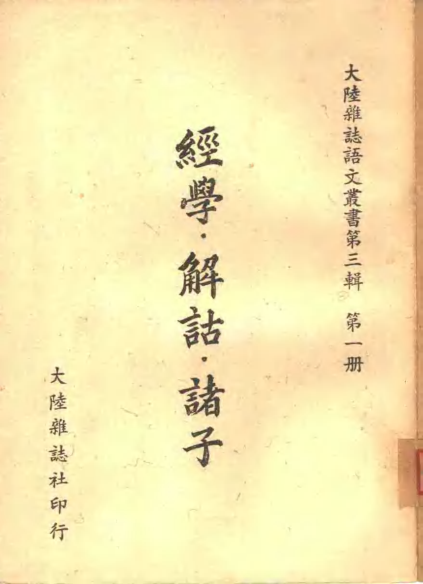 大陸雜誌語文叢書第三輯　第一册
經學·解詁·諸子
大陸雜誌社印行